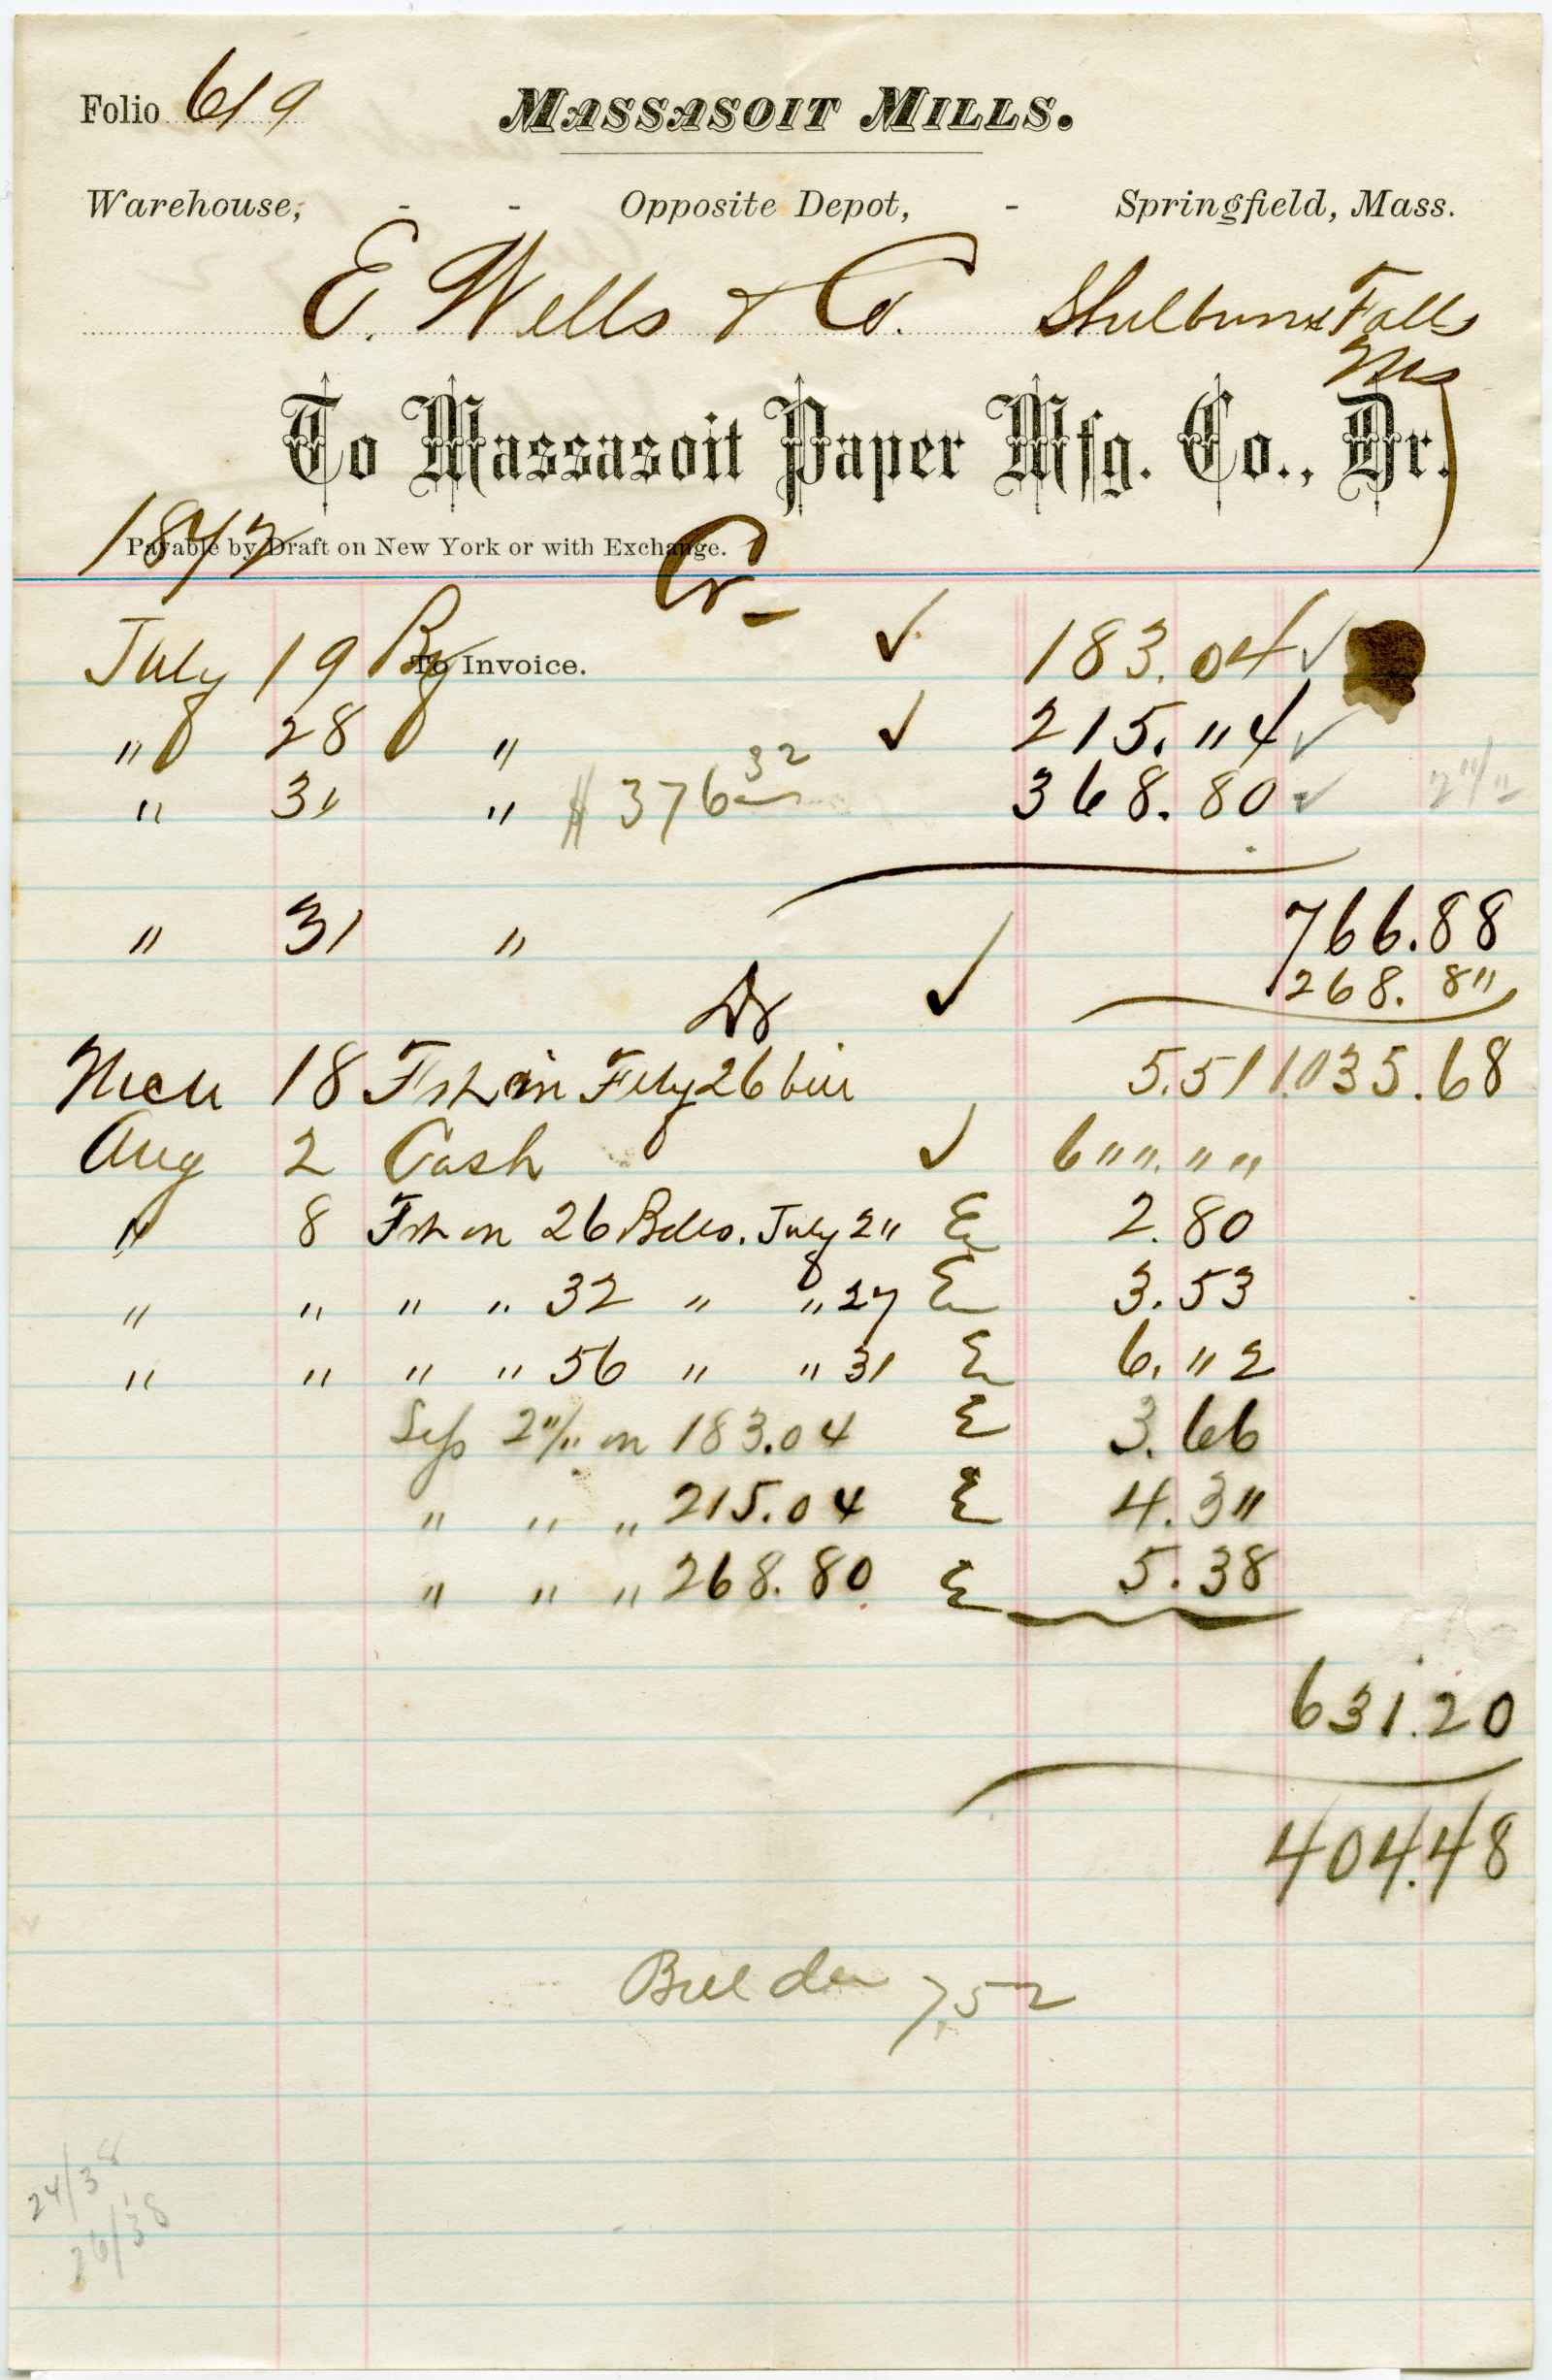 Folio 619 MASSASOIT MILLS.
Warehouse, - - Opposite Depot, - Springfield, Mass.
E. Wells & Co. Shelburne Falls
Ms
To Massasoit Paper Mfg. Co., Dr.
1872 Payable by Draft on New York or with Exchange.
Cr
July 19 By To Invoice. ✓ 183.04 ✓
" 28 " ✓ 215."4 ✓
" 31 " $376 32 368.80 ✓ 2"/"
" 31 " 766.88
✓ 268.8"
Dr
Mch 18 Frt on Feby 26 bill 5.51 1.035.68
Aug 2 Cash ✓ 6"".""
" 8 Frt on 26 Bdls. July 2" E 2.80
" " " " 32 " " 27 E 3.53
" " " " 56 " " 31 E 6."2
Less 2"/" on 183.04 E 3.66
" " " 215.04 E 4.3"
" " " 268.80 E 5.38
631.20
404.48
7.52
24/38
26/38